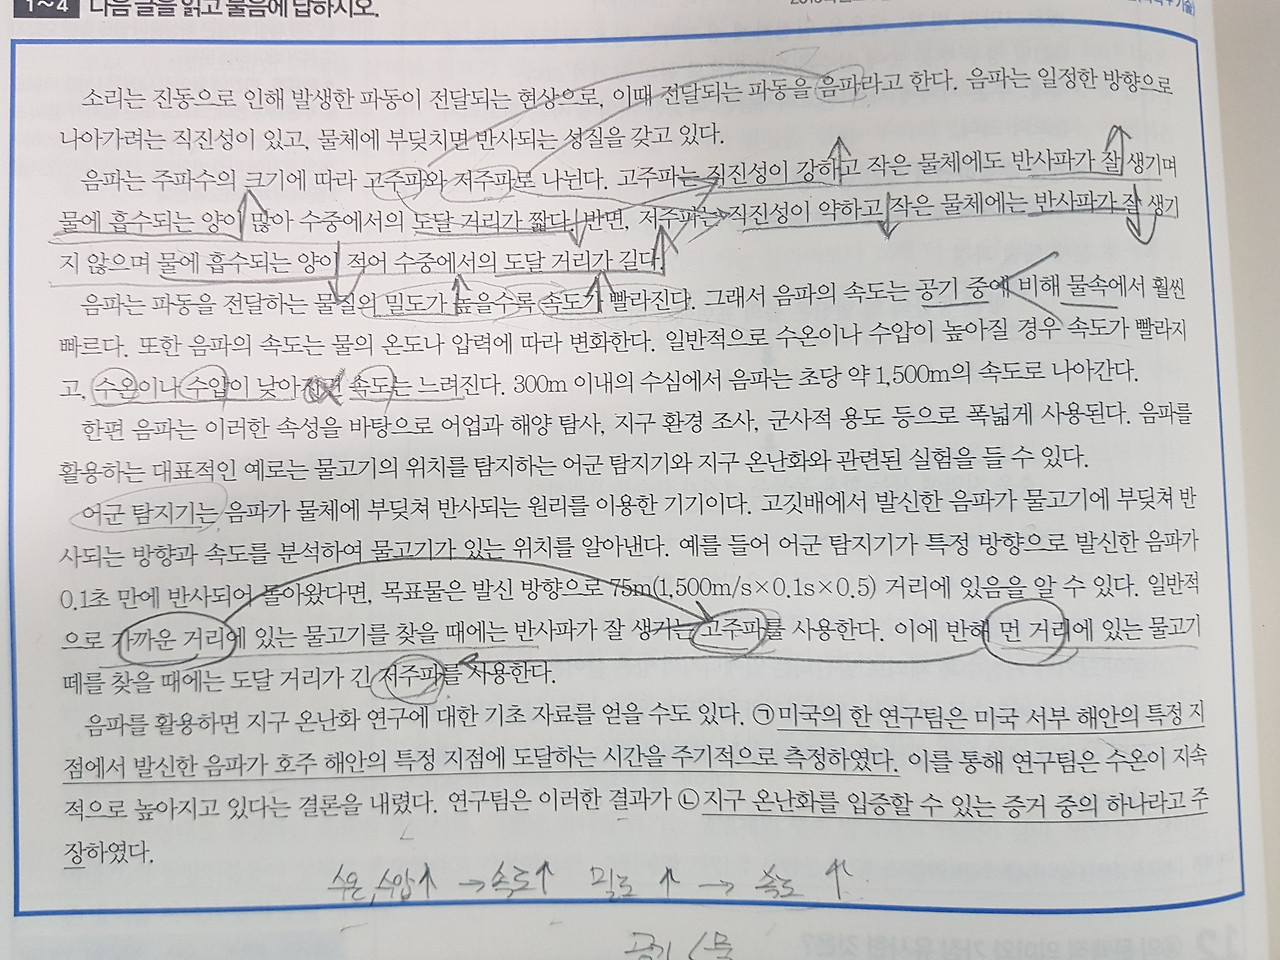 1~4 다음 글을 읽고 물음에 답하시오.
소리는 진동으로 인해 발생한 파동이 전달되는 현상으로, 이때 전달되는 파동을 음파라고 한다. 음파는 일정한 방향으로
나아가려는 직진성이 있고, 물체에 부딪치면 반사되는 성질을 갖고 있다.
음파는 주파수의 크기에 따라 고주파와 저주파로 나뉜다. 고주파는 직진성이 강하고 작은 물체에도 반사파가 잘 생기며
물에 흡수되는 양이 많아 수중에서의 도달 거리가 짧다. 반면, 저주파는 직진성이 약하고 작은 물체에는 반사파가 잘 생기
지 않으며 물에 흡수되는 양이 적어 수중에서의 도달 거리가 길다.
음파는 파동을 전달하는 물질의 밀도가 높을수록 속도가 빨라진다. 그래서 음파의 속도는 공기 중에 비해 물속에서 훨씬
빠르다. 또한 음파의 속도는 물의 온도나 압력에 따라 변화한다. 일반적으로 수온이나 수압이 높아질 경우 속도가 빨라지
고, 수온이나 수압이 낮아지면 속도는 느려진다. 300m 이내의 수심에서 음파는 초당 약 1,500m의 속도로 나아간다.
한편 음파는 이러한 속성을 바탕으로 어업과 해양 탐사, 지구 환경 조사, 군사적 용도 등으로 폭넓게 사용된다. 음파를
활용하는 대표적인 예로는 물고기의 위치를 탐지하는 어군 탐지기와 지구 온난화와 관련된 실험을 들 수 있다.
어군 탐지기는 음파가 물체에 부딪쳐 반사되는 원리를 이용한 기기이다. 고깃배에서 발신한 음파가 물고기에 부딪쳐 반
사되는 방향과 속도를 분석하여 물고기가 있는 위치를 알아낸다. 예를 들어 어군 탐지기가 특정 방향으로 발신한 음파가
0.1초 만에 반사되어 돌아왔다면, 목표물은 발신 방향으로 75m(1,500m/s×0.1s×0.5) 거리에 있음을 알 수 있다. 일반적
으로 가까운 거리에 있는 물고기를 찾을 때에는 반사파가 잘 생기는 고주파를 사용한다. 이에 반해 먼 거리에 있는 물고기
떼를 찾을 때에는 도달 거리가 긴 저주파를 사용한다.
음파를 활용하면 지구 온난화 연구에 대한 기초 자료를 얻을 수도 있다. ㉠미국의 한 연구팀은 미국 서부 해안의 특정 지
점에서 발신한 음파가 호주 해안의 특정 지점에 도달하는 시간을 주기적으로 측정하였다. 이를 통해 연구팀은 수온이 지속
적으로 높아지고 있다는 결론을 내렸다. 연구팀은 이러한 결과가 ㉡지구 온난화를 입증할 수 있는 증거 중의 하나라고 주
장하였다.
수온,수압↑ →속도↑ 밀도 ↑ → 속도 ↑
공기<물